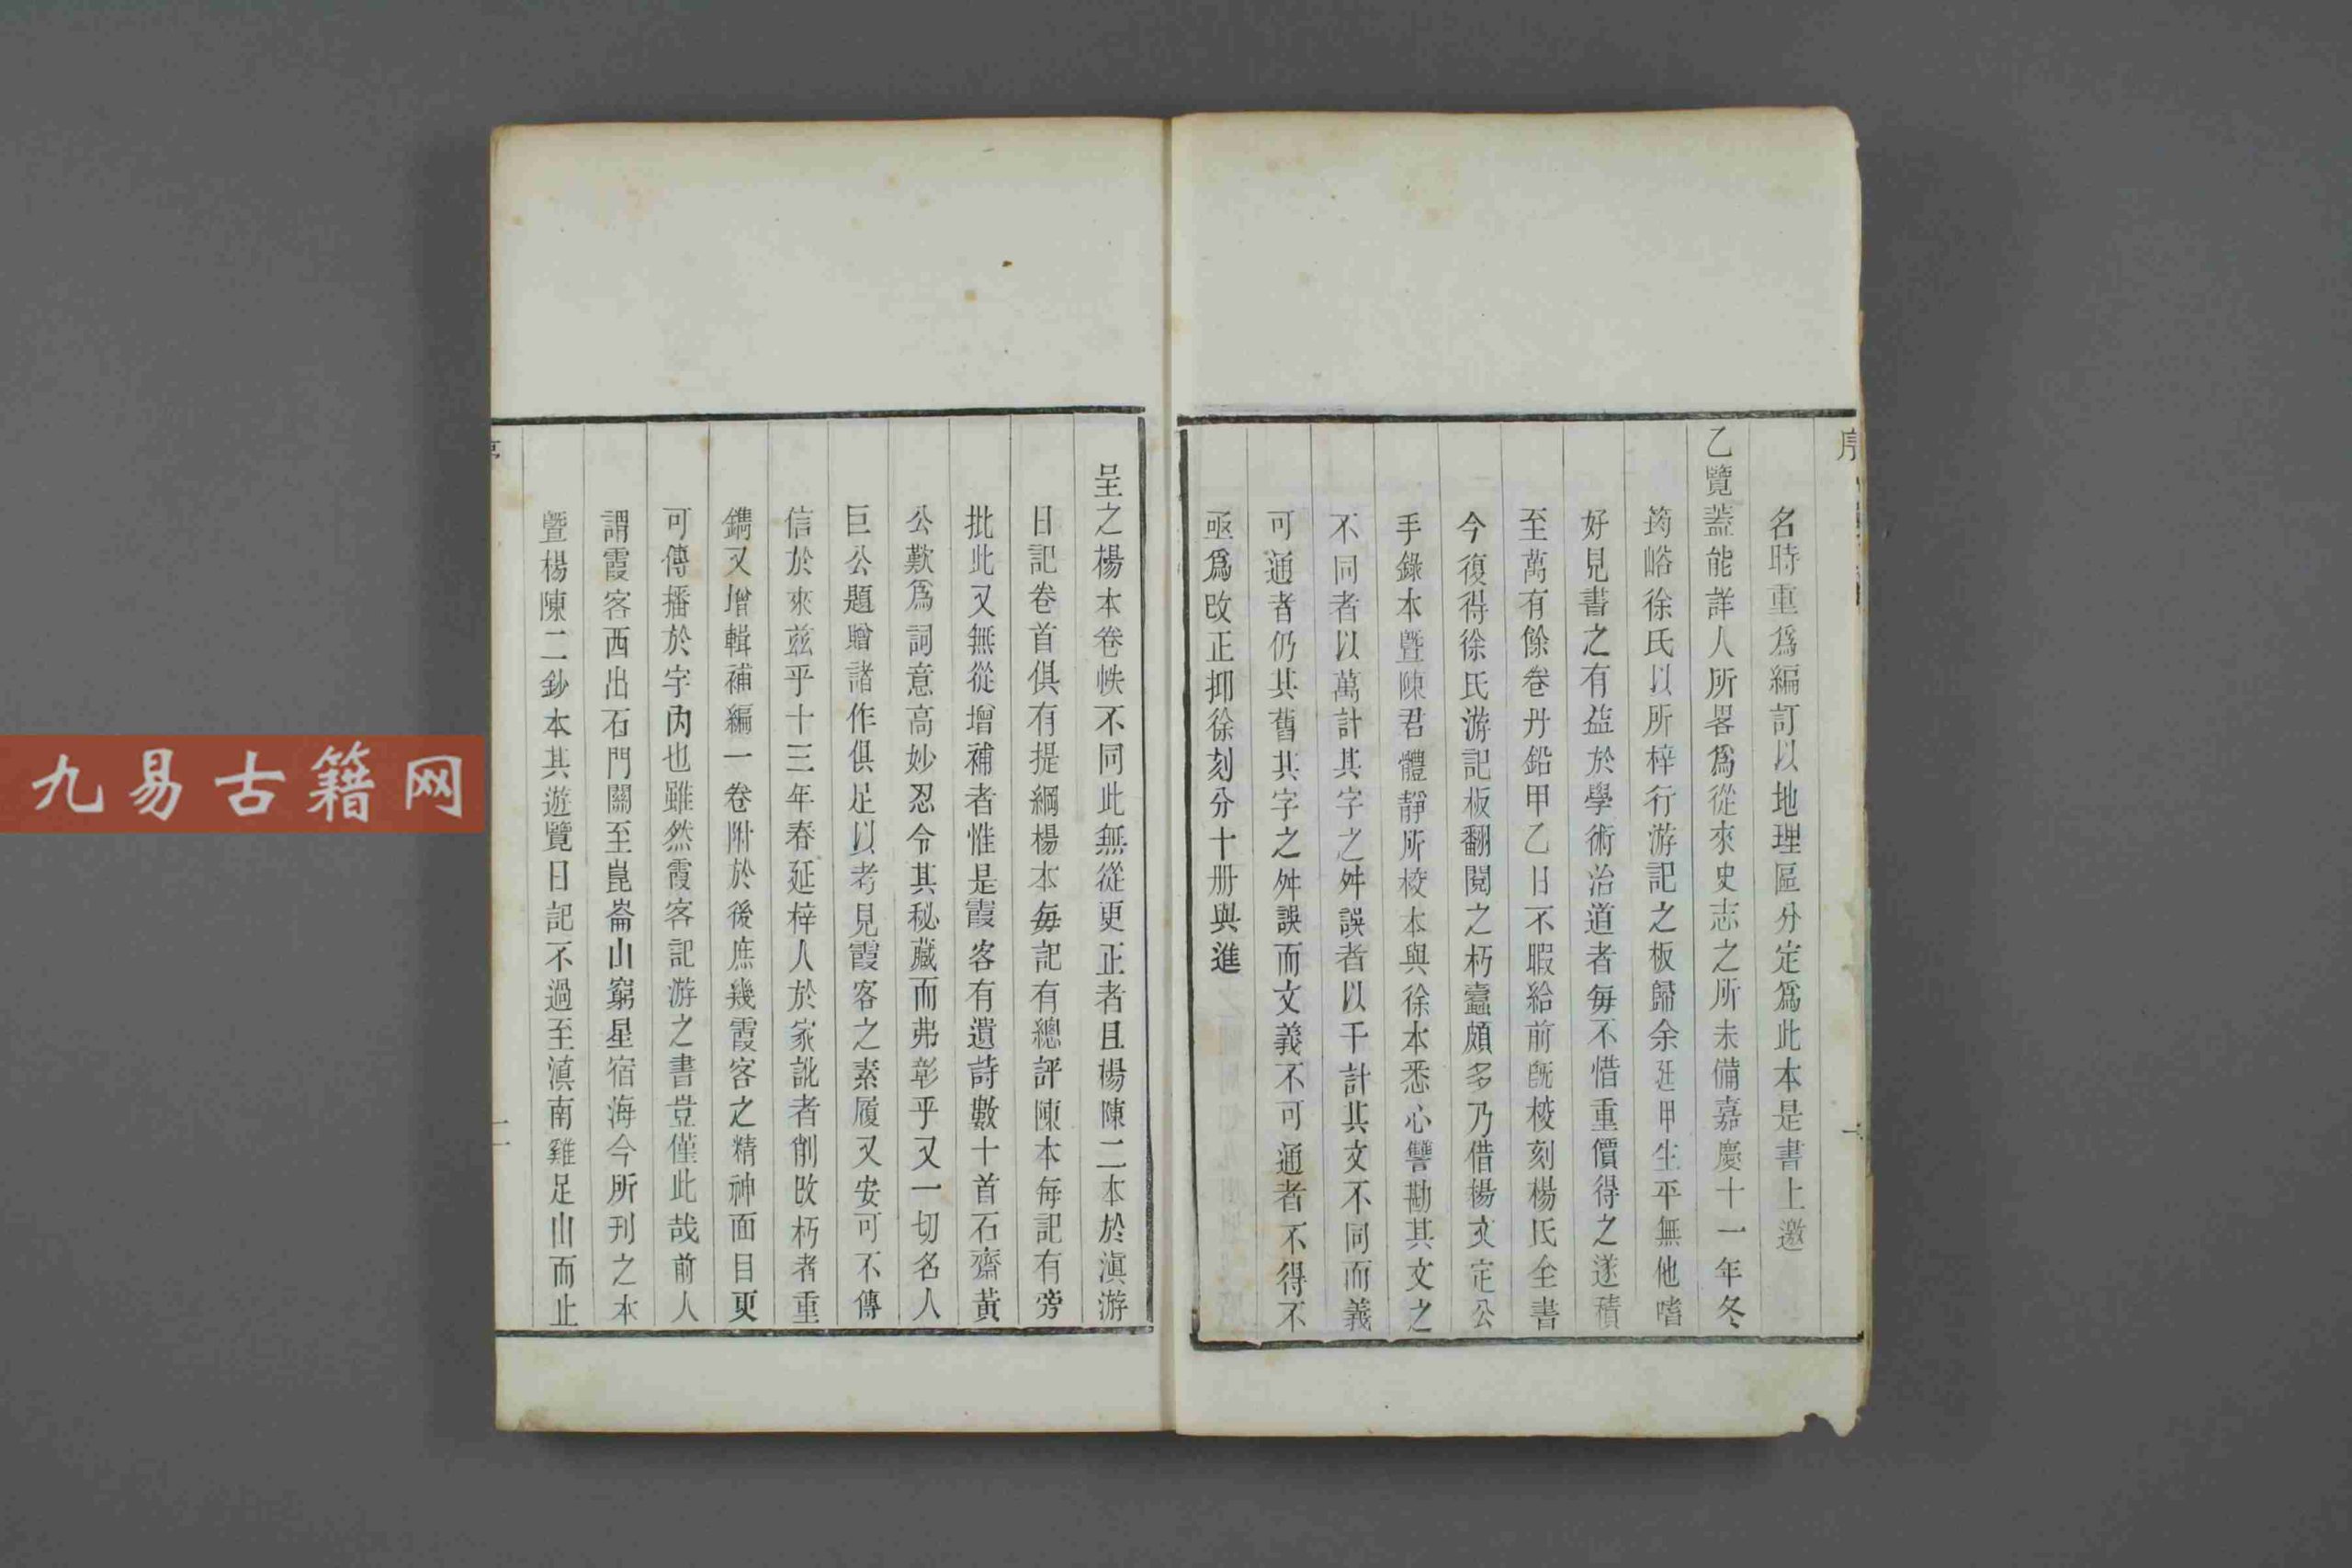 序
名時重爲編訂以地理區分定爲此本是書上邀
乙覽蓋能詳人所畧爲從來史志之所未備嘉慶十一年冬
筠峪徐氏以所梓行游記之板歸余廷甲生平無他嗜
好見書之有益於學術治道者每不惜重價得之遂積
至萬有餘卷丹鉛甲乙日不暇給前既校刻楊氏全書
今復得徐氏游記板翻閱之朽蠹頗多乃借楊文定公
手錄本暨陳君體靜所校本與徐本悉心讐勘其文之
不同者以萬計其字之舛誤者以千計其文不同而義
可通者仍其舊其字之舛誤而文義不可通者不得不
亟爲改正抑徐刻分十册與進
呈之楊本卷帙不同此無從更正者且楊陳二本於滇游
日記卷首俱有提綱楊本每記有總評陳本每記有旁
批此又無從增補者惟是霞客有遺詩數十首石齋黃
公歎爲詞意高妙忍令其秘藏而弗彰乎又一切名人
巨公題贈諸作俱足以考見霞客之素履又安可不傳
信於來兹乎十三年春延梓人於家訛者削改朽者重
鐫又增輯補編一卷附於後庶幾霞客之精神面目更
可傳播於宇內也雖然霞客記游之書豈僅此哉前人
謂霞客西出石門關至崑崙山窮星宿海今所刊之本
暨楊陳二鈔本其遊覽日記不過至滇南雞足山而止
二
九易古籍网